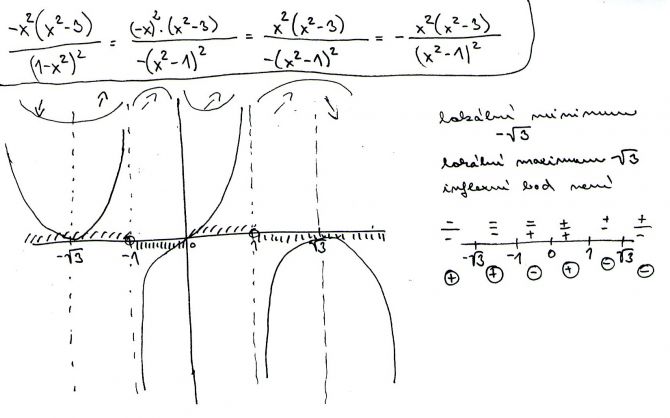 -x²(x²-3)/(1-x²)² = (-x)²·(x²-3)/-(x²-1)² = x²(x²-3)/-(x²-1)² = - x²(x²-3)/(x²-1)²
lokální minimum
-√3
lokální maximum √3
inflexní bod není
-√3 -1 0 1 √3
= = = ± ± ±
- = + = = -
-√3 -1 0 1 √3
⊕ ⊕ ⊖ ⊕ ⊖ ⊖